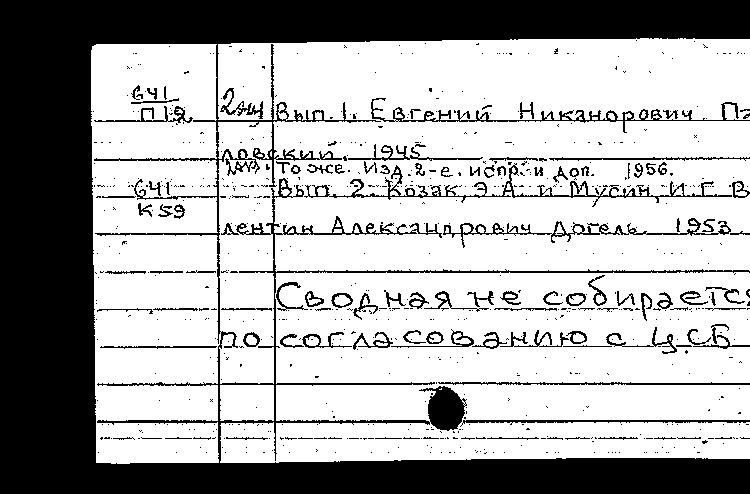 641
П12 2 экз Вып. 1. Евгений Никанорович Па
ловский. 1945
То же. Изд. 2-е. испр. и доп. 1956.
641 Вып. 2. Козак, Э.А. и Мусин, И.Г. В
К59
лентин Александрович Догель. 1953
Сводная не собирается
по согласованию с ЦСБ